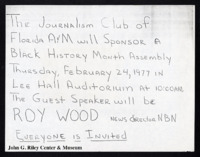 THE JOURNALISM CLUB OF
FLORIDA A&M WILL SPONSOR A
BLACK HISTORY MONTH ASSEMBLY
THURSDAY, FEBRUARY 24, 1977 IN
LEE HALL AUDITORIUM AT 10:00AM.
THE GUEST SPEAKER WILL BE
ROY WOOD NEWS DIRECTOR NBN
EVERYONE IS INVITED
John G. Riley Center & Museum